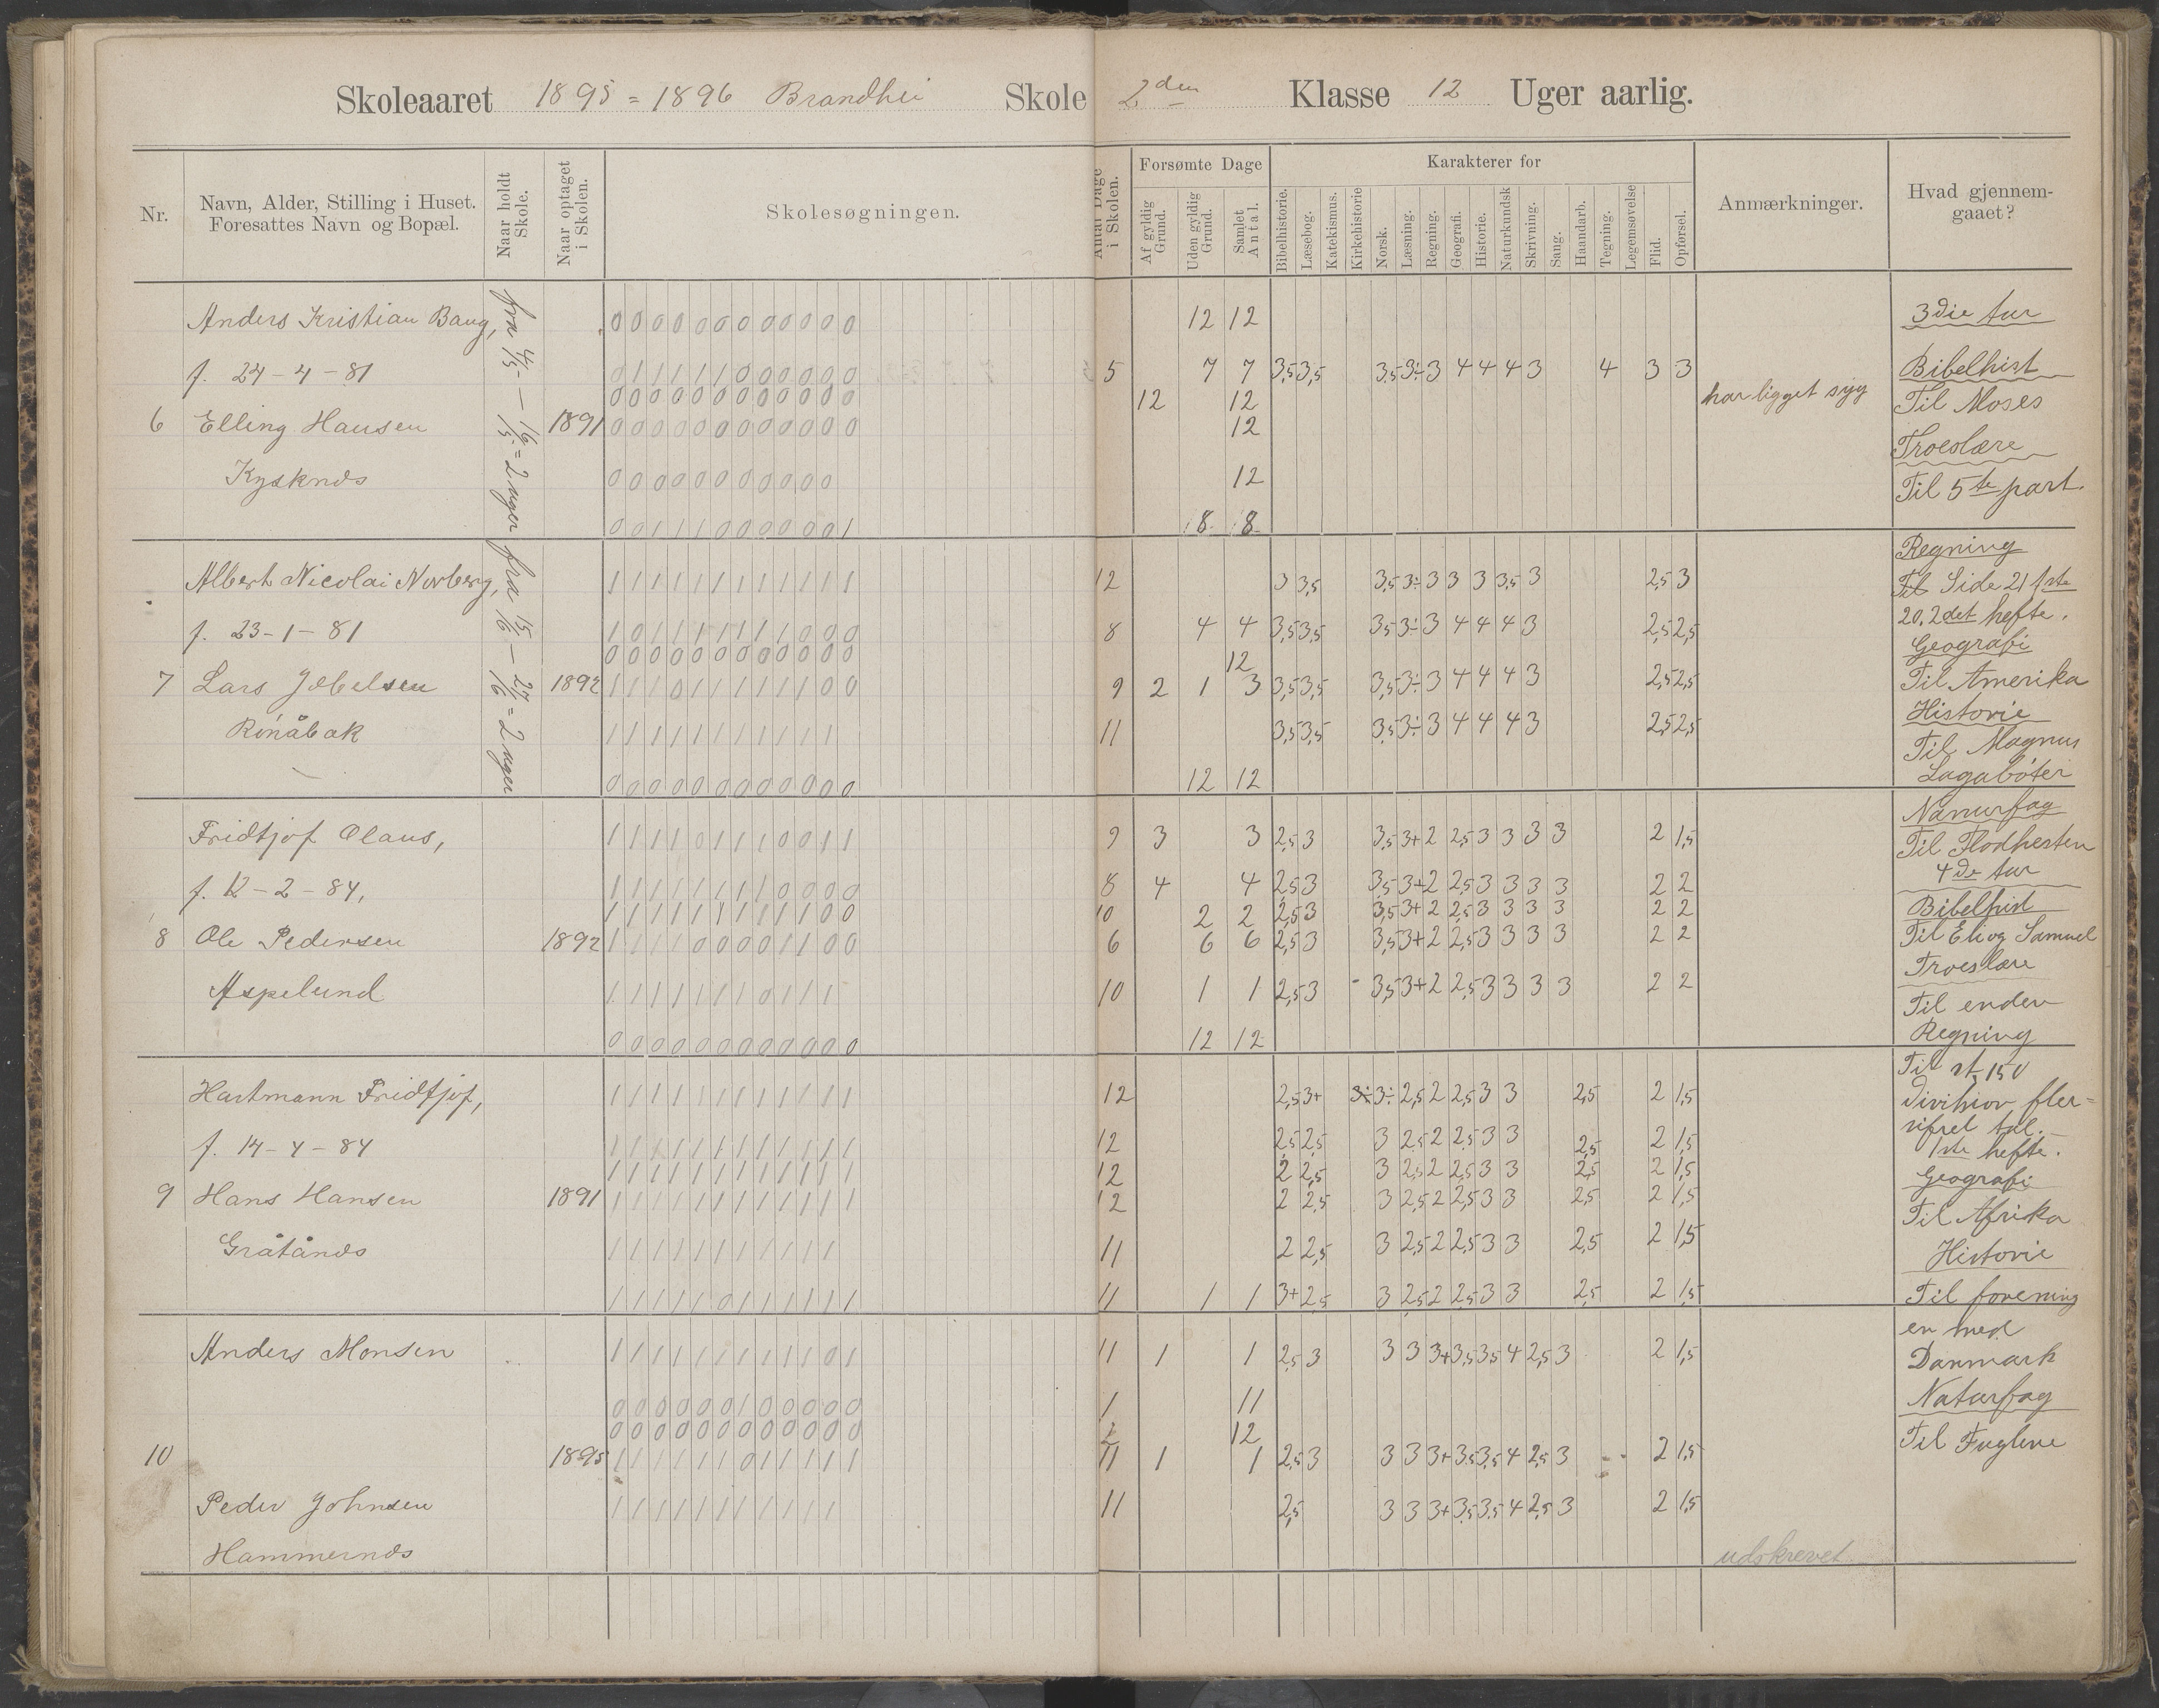 Skoleaaret 1895 = 1896 Brandhei Skole 2den Klasse 12 Uger aarlig.
Nr.
Navn, Alder, Stilling i Huset.
Foresattes Navn og Bopæl.
Naar holdt Skole.
Naar optaget i Skolen.
Skolesøgningen.
Antal Dage i Skolen.
Forsømte Dage
Af gyldig Grund.
Uden gyldig Grund.
Samlet Antal.
Karakterer for
Bibelhistorie.
Læsebog.
Katekismus.
Kirkehistorie
Norsk.
Læsning.
Regning.
Geografi.
Historie.
Naturkundsk
Skrivning.
Sang.
Haandarb.
Tegning.
Legemsøvelse
Flid.
Opførsel.
Anmærkninger.
Hvad gjennemgaaet?
fra 4/5 — 16/5 = 2 uger fra 15/6 — 27/6 = 2 uger
Anders Kristian Baug, 0 0 0 0 0 0 0 0 0 0 0 0 12 12
f. 24 - 4 - 81 0 1 1 1 1 1 0 0 0 0 0 0 5 7 7 3,5 3,5 3,5 3÷ 3 4 4 4 3 4 3 3
0 0 0 0 0 0 0 0 0 0 0 0 12 12 har ligget syg
6 Elling Hansen 1891 0 0 0 0 0 0 0 0 0 0 0 0 12
Kysknds 0 0 0 0 0 0 0 0 0 0 0 12
0 0 1 1 1 0 0 0 0 0 0 1 8 8
Albert Nicolai Norberg, 1 1 1 1 1 1 1 1 1 1 1 1 12 3 3,5 3,5 3÷ 3 3 3 3,5 3 2,5 3
f. 23 - 1 - 81 1 0 1 1 1 1 1 1 1 0 0 0 8 4 4 3,5 3,5 3,5 3÷ 3 4 4 4 3 2,5 2,5
0 0 0 0 0 0 0 0 0 0 0 0 12
7 Lars Jebelsen 1892 1 1 1 0 1 1 1 1 1 1 0 0 9 2 1 3 3,5 3,5 3,5 3÷ 3 4 4 4 3 2,5 2,5
Rønåbak 1 1 1 1 1 1 1 1 1 1 1 11 3,5 3,5 3,5 3÷ 3 4 4 4 3 2,5 2,5
0 0 0 0 0 0 0 0 0 0 0 0 12 12
Fridtjof Olaus, 1 1 1 1 0 1 1 1 0 0 1 1 9 3 3 2,5 3 3,5 3+ 2 2,5 3 3 3 3 2 1,5
f. 12 - 2 - 84, 1 1 1 1 1 1 1 1 0 0 0 0 8 4 4 2,5 3 3,5 3+ 2 2,5 3 3 3 3 2 2
1 1 1 1 1 1 1 1 1 1 0 0 10 2 2 2,5 3 3,5 3+ 2 2,5 3 3 3 3 2 2
8 Ole Pedersen 1892 1 1 1 1 0 0 0 0 1 1 0 0 6 6 6 2,5 3 3,5 3+ 2 2,5 3 3 3 3 2 2
Aspelund 1 1 1 1 1 1 1 0 1 1 1 10 1 1 2,5 3 3,5 3+ 2 2,5 3 3 3 3 2 2
0 0 0 0 0 0 0 0 0 0 0 0 12 12
Hartmann Fridtjof, 1 1 1 1 1 1 1 1 1 1 1 1 12 2,5 3+ 3÷ 3÷ 2,5 2 2,5 3 3 2,5 2 1,5
f. 14 - 4 - 84 1 1 1 1 1 1 1 1 1 1 1 1 12 2,5 2,5 3 2,5 2 2,5 3 3 2,5 2 1,5
1 1 1 1 1 1 1 1 1 1 1 1 12 2 2,5 3 2,5 2 2,5 3 3 2,5 2 1,5
9 Hans Hansen 1891 1 1 1 1 1 1 1 1 1 1 1 1 12 2 2,5 3 2,5 2 2,5 3 3 2,5 2 1,5
Gråtånds 1 1 1 1 1 1 1 1 1 1 1 11 2 2,5 3 2,5 2 2,5 3 3 2,5 2 1,5
1 1 1 1 1 0 1 1 1 1 1 1 11 1 1 3+ 2,5 3 2,5 2 2,5 3 3 2,5 2 1,5
Anders Monsen 1 1 1 1 1 1 1 1 1 1 0 1 11 1 1 2,5 3 3 3 3+ 3,5 3,5 4 2,5 3 2 1,5
0 0 0 0 0 0 1 0 0 0 0 0 1 11
0 0 0 0 0 0 0 0 0 0 0 0 12
10 1895 1 1 1 1 1 1 0 1 1 1 1 1 11 1 1 2,5 3 3 3 3+ 3,5 3,5 4 2,5 3 2 1,5
Peder Johnsen 1 1 1 1 1 1 1 1 1 1 1 11 2,5 3 3 3+ 3,5 3,5 4 2,5 3 2 1,5
Hammernds udskrevet
3die tur
Bibelhist
Til Moses
Troeslære
Til 5te part.
Regning
Til Side 21 1ste
20. 2det hefte.
Geografi
Til Amerika
Historie
Til Magnus
Lagabøter
Naturfag
Til Flodhesten
4de tur
Bibelhist
Til Eli og Samuel
Troeslære
Til enden
Regning
Til st. 150
Division fler=
sifret tal.
1ste hefte.
Geografi
Til Afrika
Historie
Til forening
en med
Danmark
Naturfag
Til Fuglene